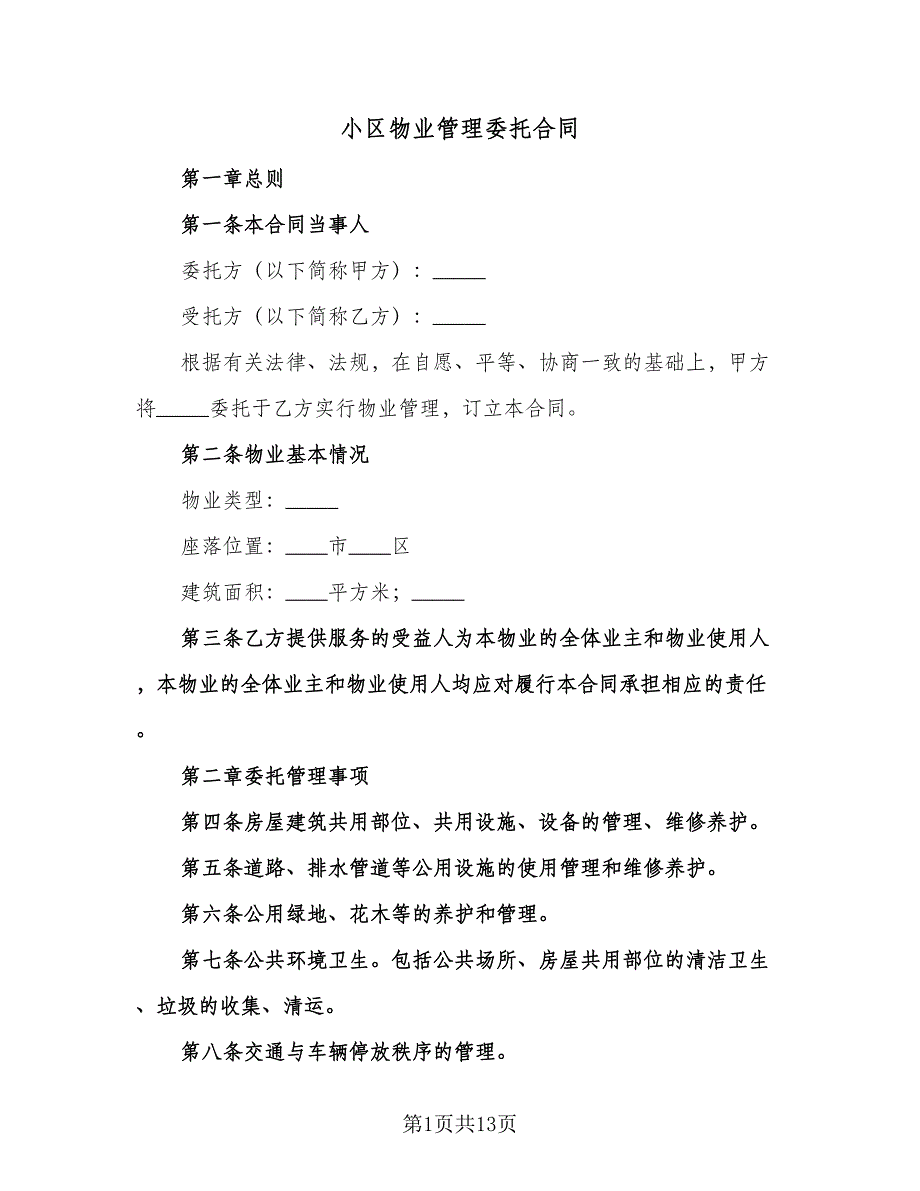 小区物业管理委托合同
第一章总则
第一条本合同当事人
委托方（以下简称甲方）：_____
受托方（以下简称乙方）：_____
根据有关法律、法规，在自愿、平等、协商一致的基础上，甲方
将_____委托于乙方实行物业管理，订立本合同。
第二条物业基本情况
物业类型：_____
座落位置：____市____区
建筑面积：____平方米；_____
第三条乙方提供服务的受益人为本物业的全体业主和物业使用人
，本物业的全体业主和物业使用人均应对履行本合同承担相应的责任
。
第二章委托管理事项
第四条房屋建筑共用部位、共用设施、设备的管理、维修养护。
第五条道路、排水管道等公用设施的使用管理和维修养护。
第六条公用绿地、花木等的养护和管理。
第七条公共环境卫生。包括公共场所、房屋共用部位的清洁卫生
、垃圾的收集、清运。
第八条交通与车辆停放秩序的管理。
第1页共13页